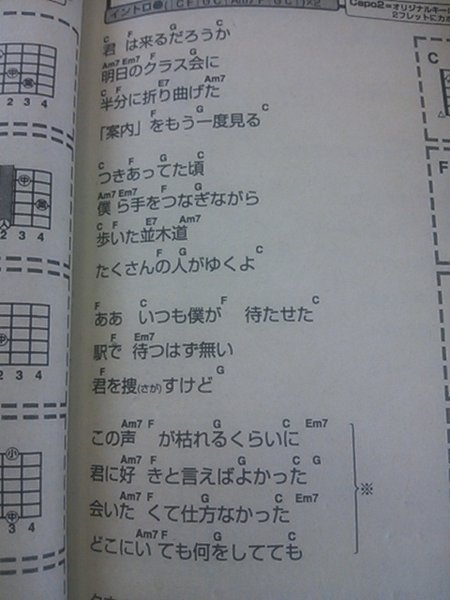 イントロ●(C F|G C|Am7 F|G C|)×2
Capo2=オリジナルキー
2フレットにカポ
C F G C
君 は来るだろうか
Am7 Em7 F G
明日のクラス会に
C F E7 Am7
半分に折り曲げた
F G C
「案内」をもう一度見る
C F G C
つきあってた頃
Am7 Em7 F G
僕 ら手をつなぎながら
C F E7 Am7
歩いた並木道
F G C
たくさんの人がゆくよ
F C F C
ああ いつも僕が 待たせた
F Em7
駅で 待つはず無い
F G
君を捜(さが)すけど
Am7 F G C Em7
この声 が枯れるくらいに
Am7 F G C G
君に好 きと言えばよかった
Am7 F G C Em7
会いた くて仕方なかった
Am7 F G C
どこにい ても何をしてても
※
2 3 4
中
薬
2 3 4
中
薬
2 3 4
人
2 3 4
中
3 4
小
中
C
F